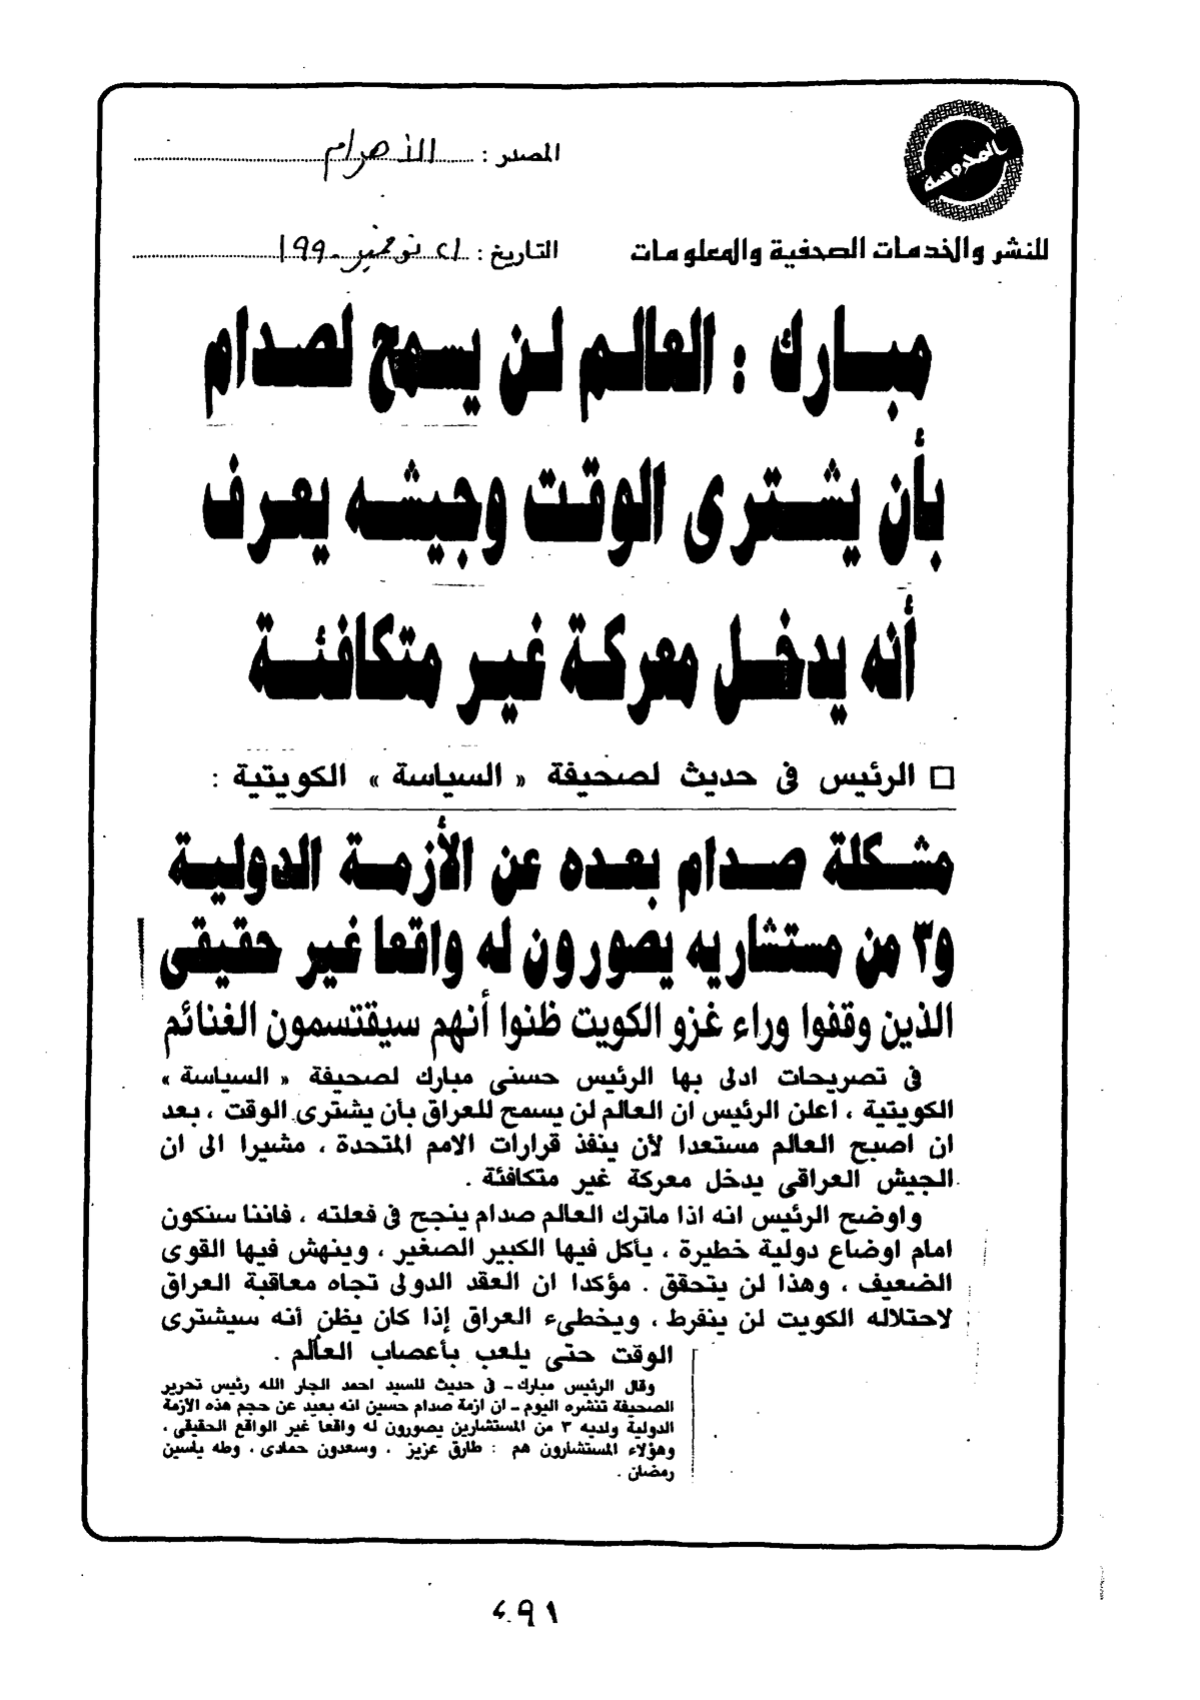 المحروسة
المصدر : الأهرام
للنشر والخدمات الصحفية والمعلومات
التاريخ : ٢١ نوفمبر ١٩٩٠
مبارك : العالم لن يسمح لصدام
بأن يشترى الوقت وجيشه يعرف
أنه يدخل معركة غير متكافئة
□ الرئيس فى حديث لصحيفة « السياسة » الكويتية :
مشكلة صدام بعده عن الأزمة الدولية
و٣ من مستشاريه يصورون له واقعا غير حقيقى !
الذين وقفوا وراء غزو الكويت ظنوا أنهم سيقتسمون الغنائم
فى تصريحات ادلى بها الرئيس حسنى مبارك لصحيفة « السياسة »
الكويتية ، اعلن الرئيس ان العالم لن يسمح للعراق بأن يشترى الوقت ، بعد
ان اصبح العالم مستعدا لأن ينفذ قرارات الامم المتحدة ، مشيرا الى ان
الجيش العراقى يدخل معركة غير متكافئة .
واوضح الرئيس انه اذا ماترك العالم صدام ينجح فى فعلته ، فاننا سنكون
امام اوضاع دولية خطيرة ، يأكل فيها الكبير الصغير ، وينهش فيها القوى
الضعيف ، وهذا لن يتحقق . مؤكدا ان العقد الدولى تجاه معاقبة العراق
لاحتلاله الكويت لن ينفرط ، ويخطىء العراق إذا كان يظن أنه سيشترى
الوقت حتى يلعب بأعصاب العالم .
وقال الرئيس مبارك - فى حديث للسيد احمد الجار الله رئيس تحرير
الصحيفة تنشره اليوم - ان ازمة صدام حسين انه بعيد عن حجم هذه الأزمة
الدولية ولديه ٣ من المستشارين يصورون له واقعا غير الواقع الحقيقى ،
وهؤلاء المستشارون هم : طارق عزيز ، وسعدون حمادى ، وطه ياسين
رمضان .